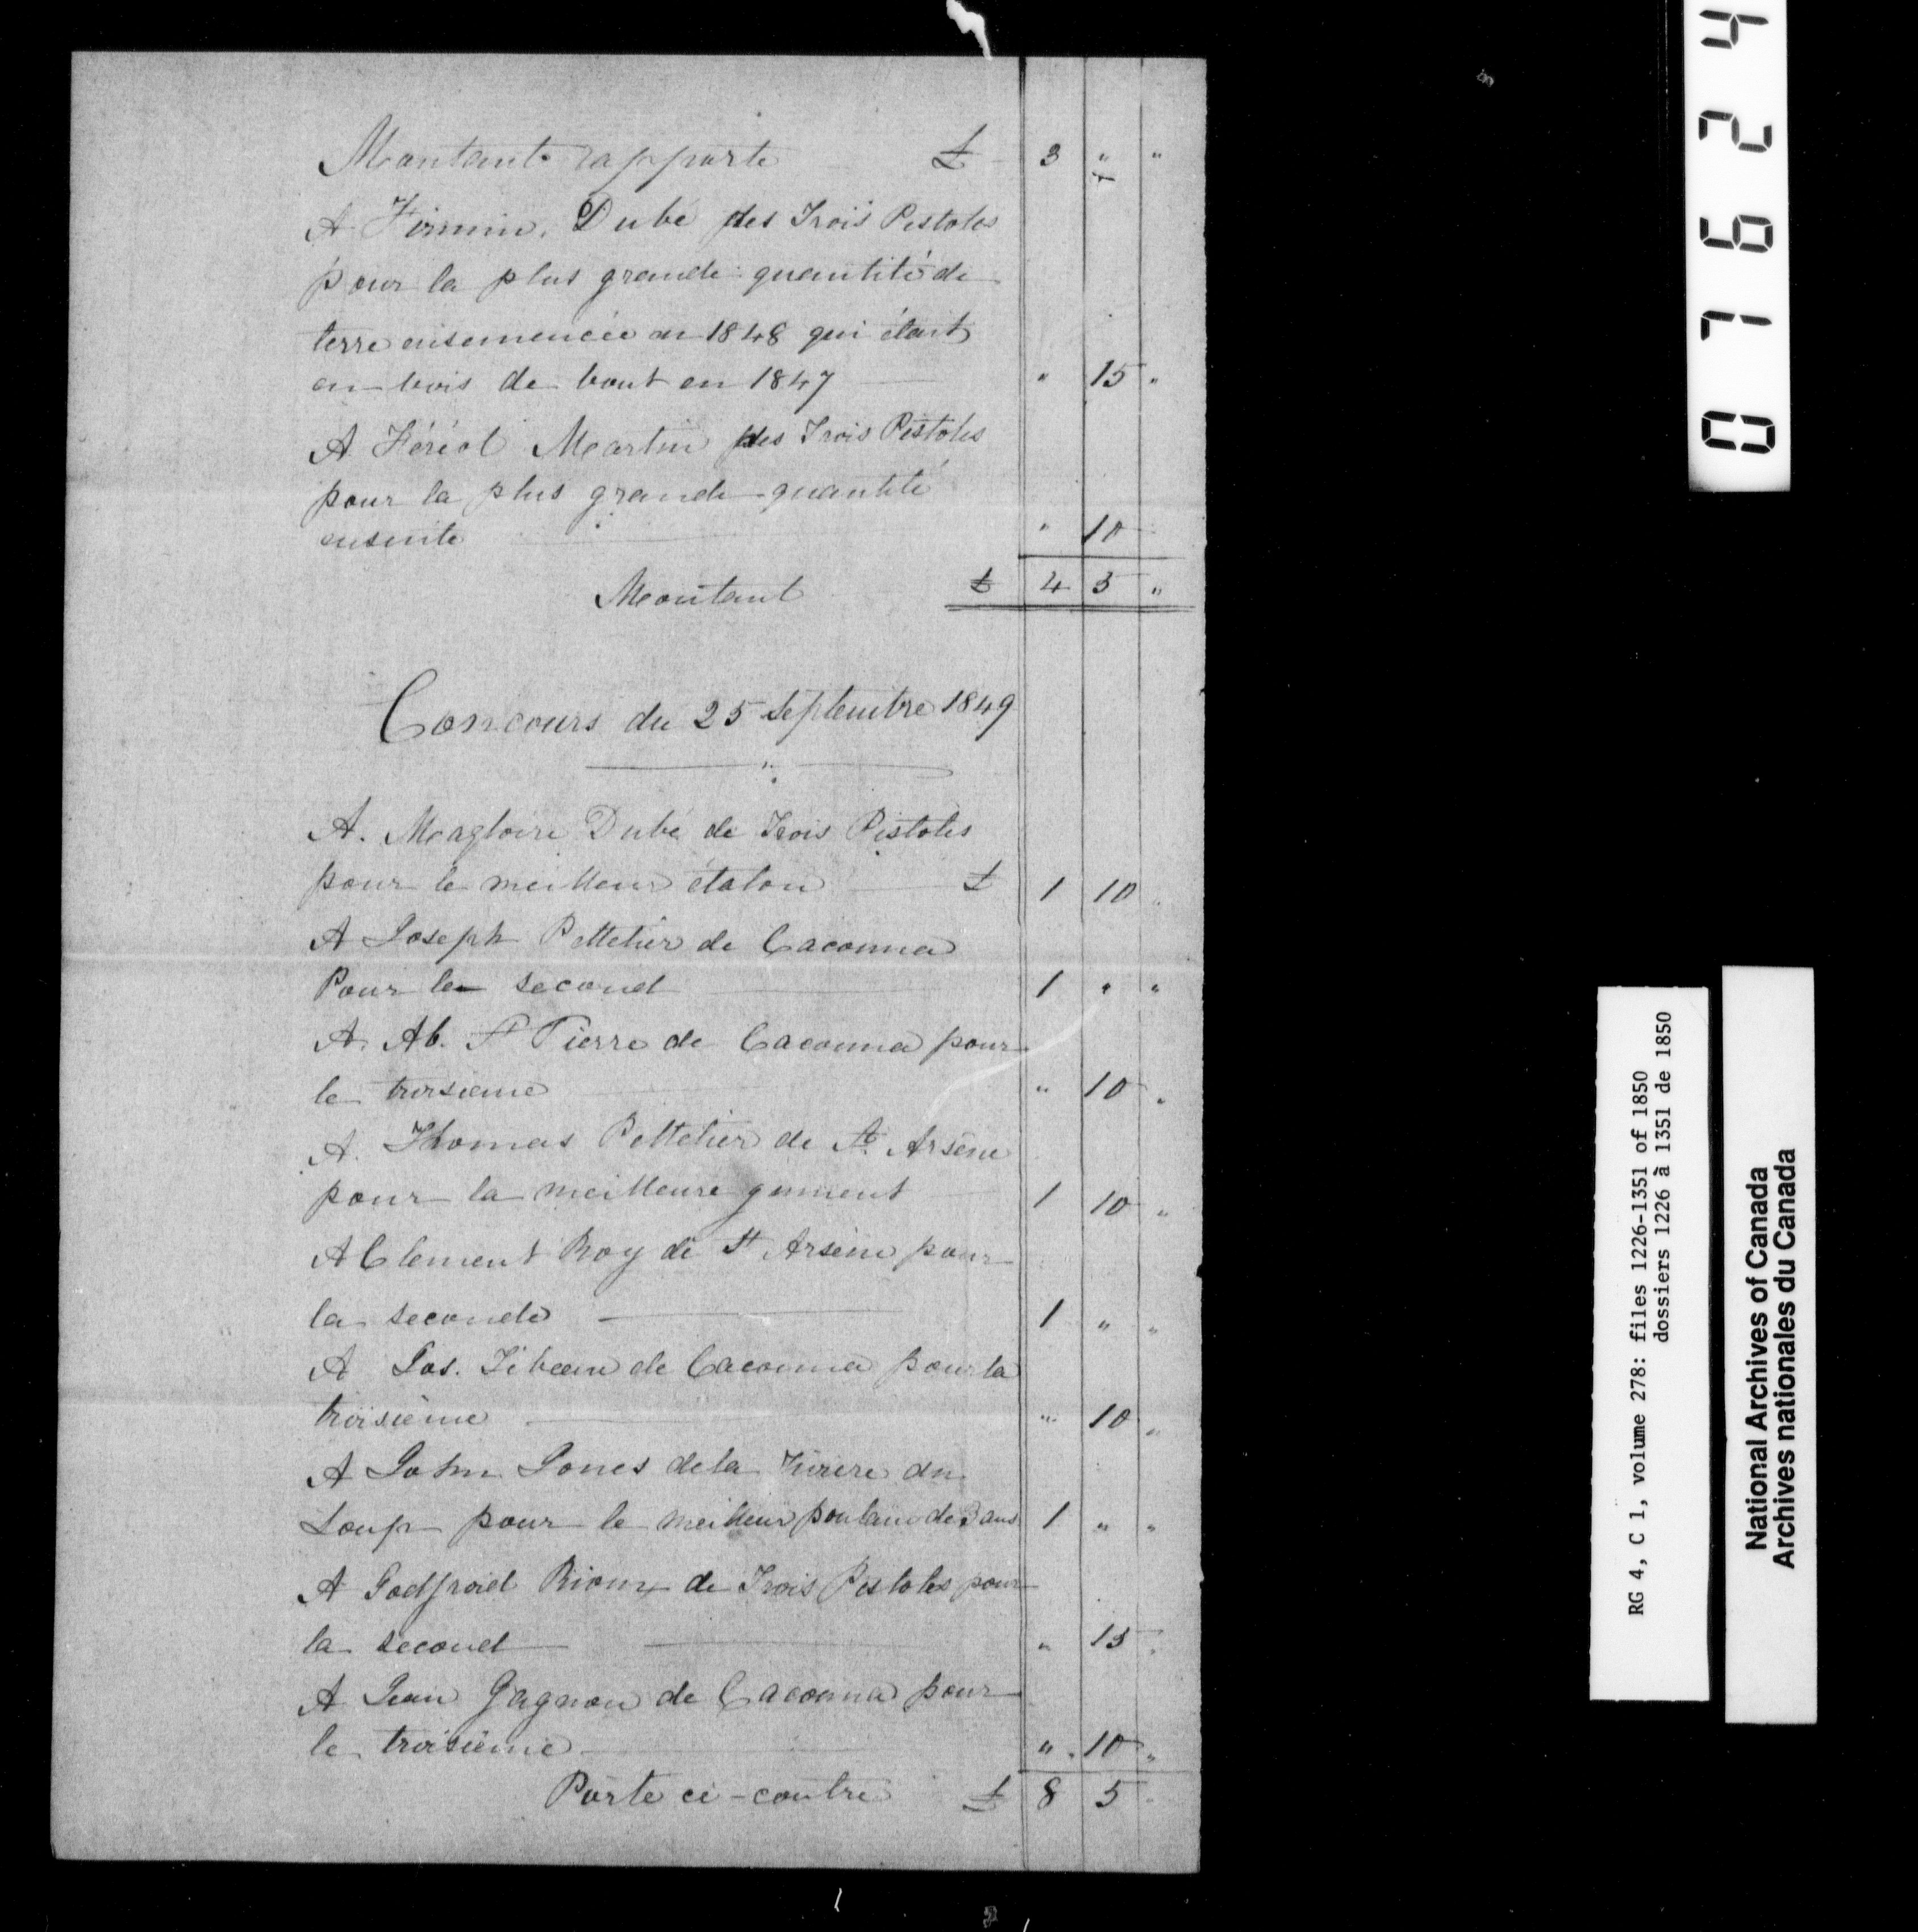 Montant rapporté £ 3 " "
A Firmin Dubé des Trois Pistoles
pour la plus grande quantité de
terre ensemencée en 1848 qui était
en bois de bout en 1847 " 15 "
A Féréol Martin des Trois Pistoles
pour la plus grande quantité
ensuite " 10
Montant £ 4 5 "
Concours du 25 Septembre 1849
A. Magloire Dubé de Trois Pistoles
pour le meilleur étalon £ 1 10 "
A Joseph Pelletier de Cacouna
Pour le second 1 " "
A. Ab. St Pierre de Cacouna pour
le troisieme " 10 "
A. Thomas Pelletier de St. Arsène
pour la meilleure jument 1 10 "
A Clement Roy de St Arsène pour
la seconde 1 " "
A Jos. de Cacouna pour la
troisième " 10 "
A John Jones de la Riviere du
Loup pour le meilleur poulain de 3 ans 1 " "
A Godfroid Rioux de Trois Pistoles pour
la second " 15 "
A Jean Gagnon de Cacouna pour
le troisième " 10 "
Porté ci-contre £ 8 5 "
07624
RG 4, C 1, volume 278: files 1226-1351 of 1850
dossiers 1226 à 1351 de 1850
National Archives of Canada
Archives nationales du Canada